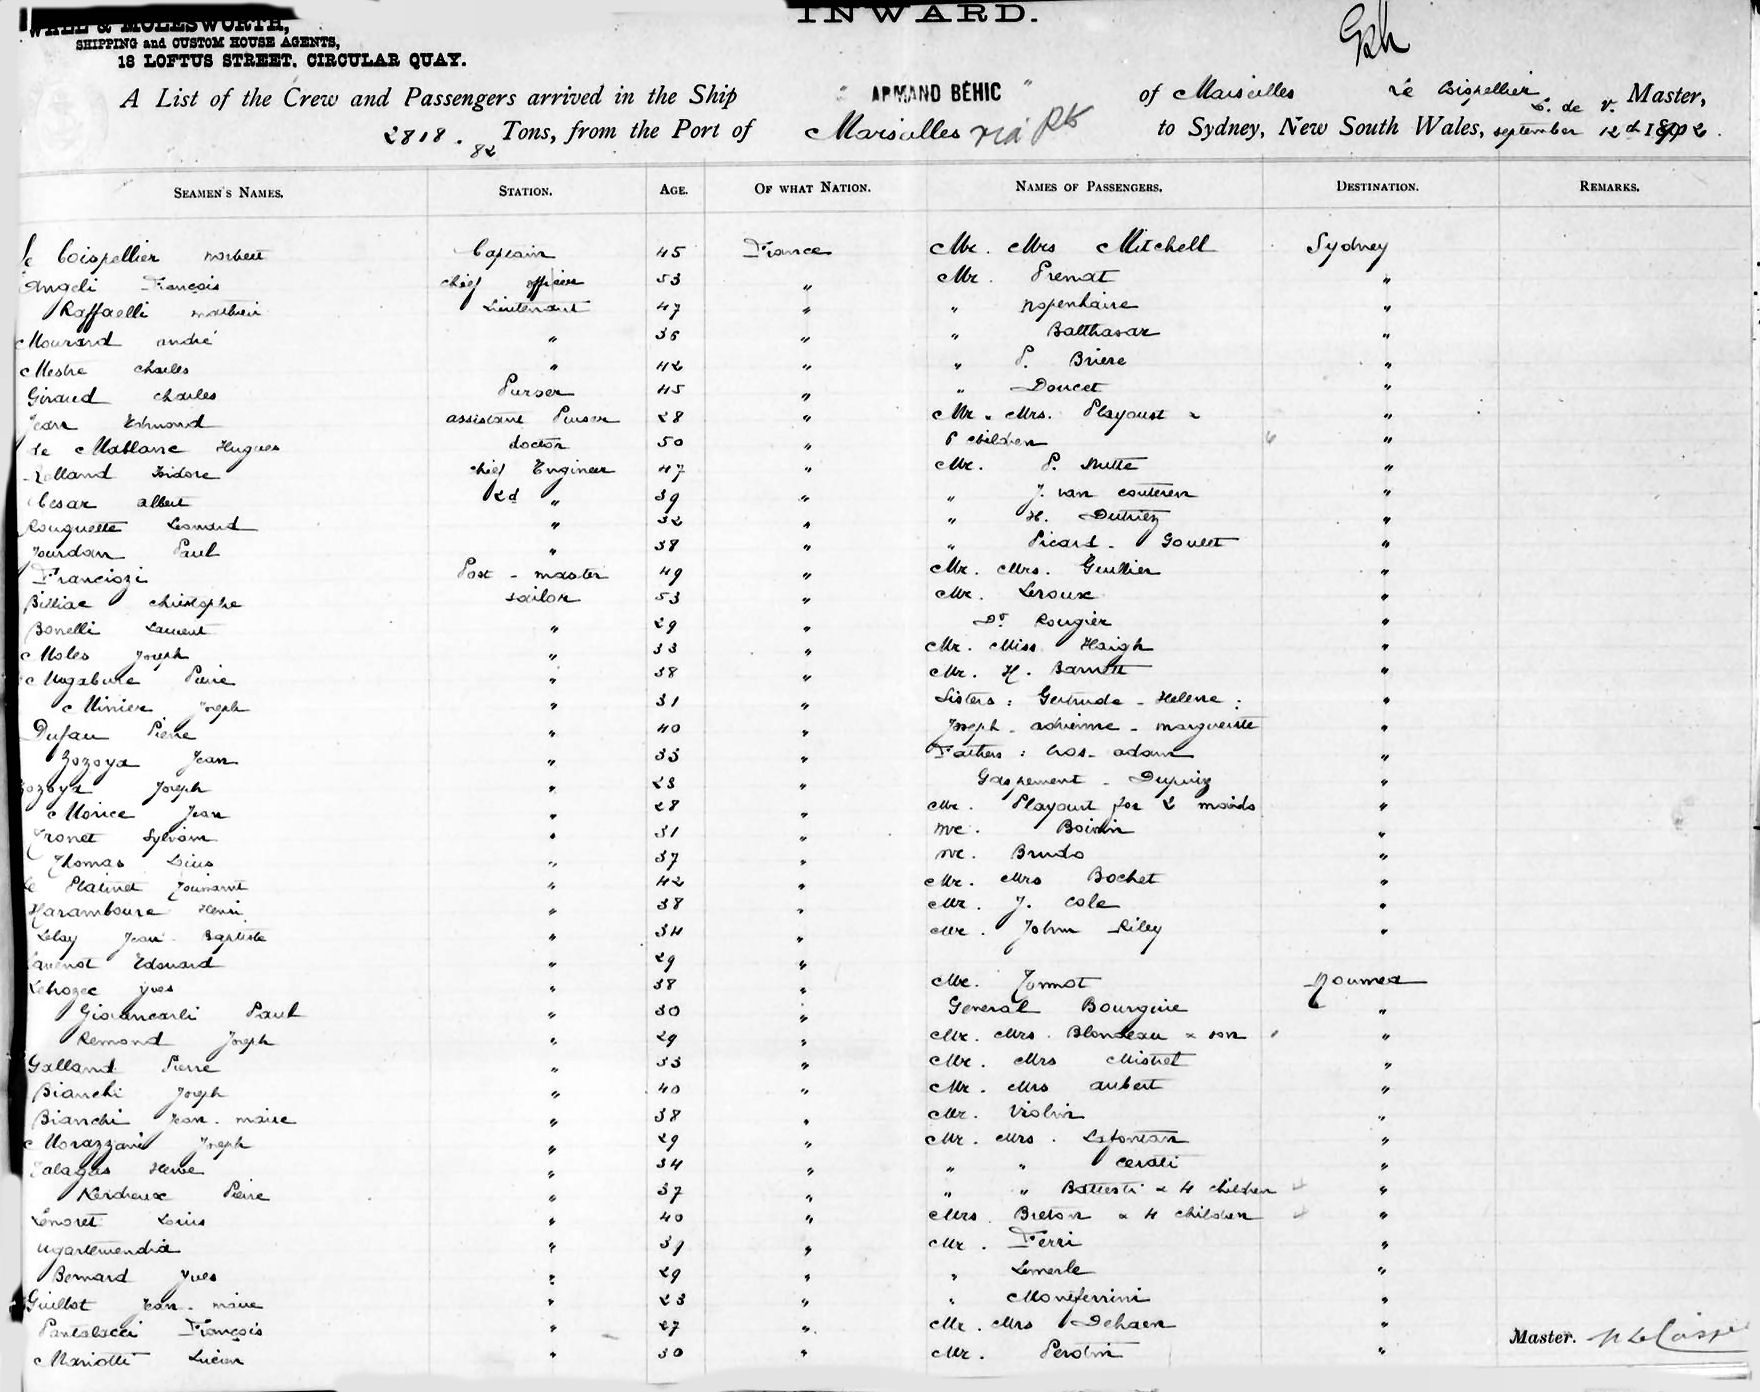 INWARD.
WALL & MOLESWORTH,
SHIPPING and CUSTOM HOUSE AGENTS,
18 LOFTUS STREET, CIRCULAR QUAY.
A List of the Crew and Passengers arrived in the Ship " ARMAND BÉHIC " of Marseilles Master,
2818.82 Tons, from the Port of Marseilles via to Sydney, New South Wales, september 12th 1902.
SEAMEN'S NAMES. STATION. AGE. OF WHAT NATION. NAMES OF PASSENGERS. DESTINATION. REMARKS.
le Coispellier norbert Captain 45 France Mr. Mrs Mitchell Sydney
Angeli François chief officer 53 " Mr. Premat "
Raffaelli mathieu Lieutenant 47 " " "
Mourard andré " 36 " " Balthasar "
Mestre charles " 42 " " P. Briere "
Giraud charles Purser 45 " " Doucet "
Jean Edmond assistant Purser 28 " Mr. Mrs. Playoust & "
le Hugues doctor 50 " children "
Rolland Isidore chief Engineer 47 " Mr. P. "
Cesar albert 2d " 39 " " J. van "
Rouquette Leonard " 32 " " H. "
Jourdan Paul " 38 " " Picard - Goulet "
Franciozi Post-master 49 " Mr. Mrs. "
Billiac christophe sailor 53 " Mr. Leroux "
Bonelli Laurent " 29 " Dr Rougier "
Moles Joseph " 33 " Mr. Miss Haigh "
Pierre " 38 " Mr. H. Barnett "
Minier Joseph " 31 " Sisters: Gertrude - Helene: "
Dufau Pierre " 40 " Joseph - adrienne - marguerite
Zozoya Jean " 33 " Fathers: adam "
Zozoya Joseph " 23 " "
Morice Jean " 28 " Mr. Playoust for 2 maids "
Tronet Sylvain " 31 " Mr. Boivin "
Thomas Louis " 37 " Mr. "
le Platinet Toussaint " 42 " Mr. Mrs Bochet "
Haramboure Henri " 38 " Mr. J. Cole "
Lelay Jean-Baptiste " 34 " Mr. John Riley "
Edouard " 29 "
Lehozec yves " 38 " Mr. Noumea
Giovancarli Paul " 30 " General "
Remond Joseph " 29 " Mr. Mrs. Blondeau & son "
Galland Pierre " 33 " Mr. Mrs Mistret "
Bianchi Joseph " 40 " Mr. Mrs aubert "
Bianchi Jean-marie " 38 " Mr. Violin "
Morazzani Joseph " 29 " Mr. Mrs. "
Herve " 34 " " " "
Kerdreux Pierre " 37 " " " Battesti & 4 children "
Lenoret Louis " 40 " Mrs. Breton & 4 children "
Ugartemendia " 39 " Mr. Ferri "
Bernard Yves " 29 " " Lemerle "
Guillot Jean-marie " 23 " " Monferrini "
Pantalacci François " 27 " Mr. Mrs Dehaen "
Mariotti Lucien " 30 " Mr. Perdrin "
Master.